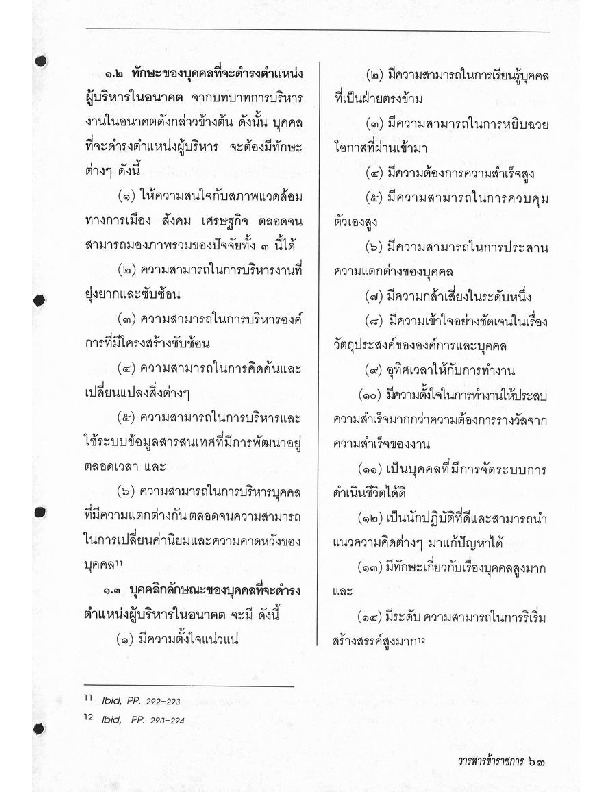 ๑.๒ ทักษะของบุคคลที่จะดำรงตำแหน่ง
ผู้บริหารในอนาคต จากบทบาทการบริหาร
งานในอนาคตดังกล่าวข้างต้น ดังนั้น บุคคล
ที่จะดำรงตำแหน่งผู้บริหาร จะต้องมีทักษะ
ต่างๆ ดังนี้
(๑) ให้ความสนใจกับสภาพแวดล้อม
ทางการเมือง สังคม เศรษฐกิจ ตลอดจน
สามารถมองภาพรวมของปัจจัยทั้ง ๓ นี้ได้
(๒) ความสามารถในการบริหารงานที่
ยุ่งยากและซับซ้อน
(๓) ความสามารถในการบริหารองค์
การที่มีโครงสร้างซับซ้อน
(๔) ความสามารถในการคิดค้นและ
เปลี่ยนแปลงสิ่งต่างๆ
(๕) ความสามารถในการบริหารและ
ใช้ระบบข้อมูลสารสนเทศที่มีการพัฒนาอยู่
ตลอดเวลา และ
(๖) ความสามารถในการบริหารบุคคล
ที่มีความแตกต่างกัน ตลอดจนความสามารถ
ในการเปลี่ยนค่านิยมและความคาดหวังของ
บุคคล11
๑.๓ บุคคลิกลักษณะของบุคคลที่จะดำรง
ตำแหน่งผู้บริหารในอนาคต จะมี ดังนี้
(๑) มีความตั้งใจแน่วแน่
(๒) มีความสามารถในการเรียนรู้บุคคล
ที่เป็นฝ่ายตรงข้าม
(๓) มีความสามารถในการหยิบฉวย
โอกาสที่ผ่านเข้ามา
(๔) มีความต้องการความสำเร็จสูง
(๕) มีความสามารถในการควบคุม
ตัวเองสูง
(๖) มีความสามารถในการประสาน
ความแตกต่างของบุคคล
(๗) มีความกล้าเสี่ยงในระดับหนึ่ง
(๘) มีความเข้าใจอย่างชัดเจนในเรื่อง
วัตถุประสงค์ขององค์การและบุคคล
(๙) อุทิศเวลาให้กับการทำงาน
(๑๐) มีความตั้งใจในการทำงานให้ประสบ
ความสำเร็จมากกว่าความต้องการรางวัลจาก
ความสำเร็จของงาน
(๑๑) เป็นบุคคลที่มีการจัดระบบการ
ดำเนินชีวิตได้ดี
(๑๒) เป็นนักปฏิบัติที่ดีและสามารถนำ
แนวความคิดต่างๆ มาแก้ปัญหาได้
(๑๓) มีทักษะเกี่ยวกับเรื่องบุคคลสูงมาก
และ
(๑๔) มีระดับ ความสามารถในการริเริ่ม
สร้างสรรค์สูงมาก12
11 Ibid, PP. 292-293
12 Ibid, PP. 293-294
วารสารข้าราชการ ๖๓